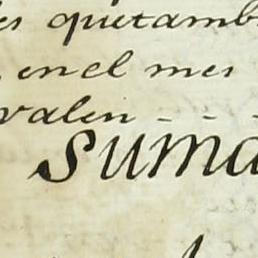 quetamb
en el mes
valen - - -
suma